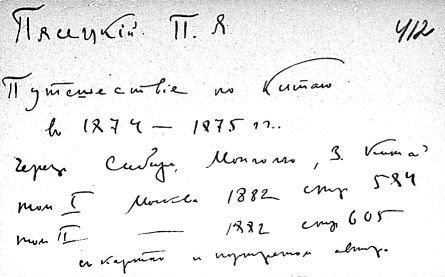 Пясецкій. П. Я 412
Путешествіе по Китаю
в 1874 — 1875 гг..
через Сибирь, Монголию, В. Китай
том I Москва 1882 стр 584
том II — 1882 стр 605
с картой и портретом автора